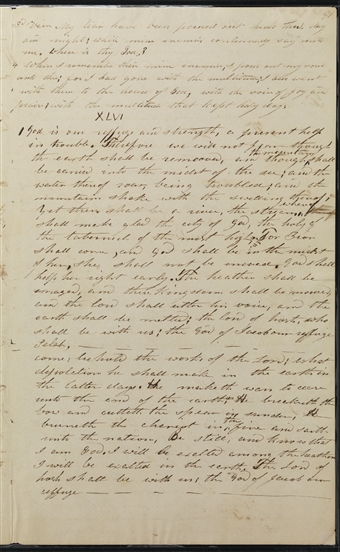 3 Years, my tears have been poured out and this day
and night; while mine enemies continually say unto
me, where is thy God?
4 When I remember these mine enemies, I pour out my soul
unto thee; for I had gone with the multitude; I also went
with them to the house of God, with the voice of joy and
praise; with the multitude that kept holy day.
XLVI
1 God is our refuge and strength, a present help
in trouble. Therefore we will not fear though
the earth shall be removed, and though the mountains shall
be carried into the midst of the sea; and the
waters thereof roar, being troubled; and the
mountains shake with the swelling thereof
Yet there shall be a river, the streams whereof
shall make glad the city of God, the holy of
the tabernacle of the most high. For Zion
shall come, and God shall be in the midst
of her, she shall not be moved. God shall
help her right early. The heathen shall be
enraged, and their kingdoms shall be moved,
and the Lord shall utter his voice, and the
earth shall be melted; the Lord of hosts, who
shall be with us; the God of Jacob our refuge
Selah.
come, behold the works of the Lord; what
desolation he shall make in the earth in
the latter days. He maketh wars to cease
unto the end of the earth. He breaketh the
bow and cutteth the spear in sunder, He
burneth the chariot in the fire and saith
unto the nation, Be still, and know that
I am God. I will be exalted among the heathen
I will be exalted in the earth. The Lord of
hosts shall be with us; the God of Jacob our
refuge